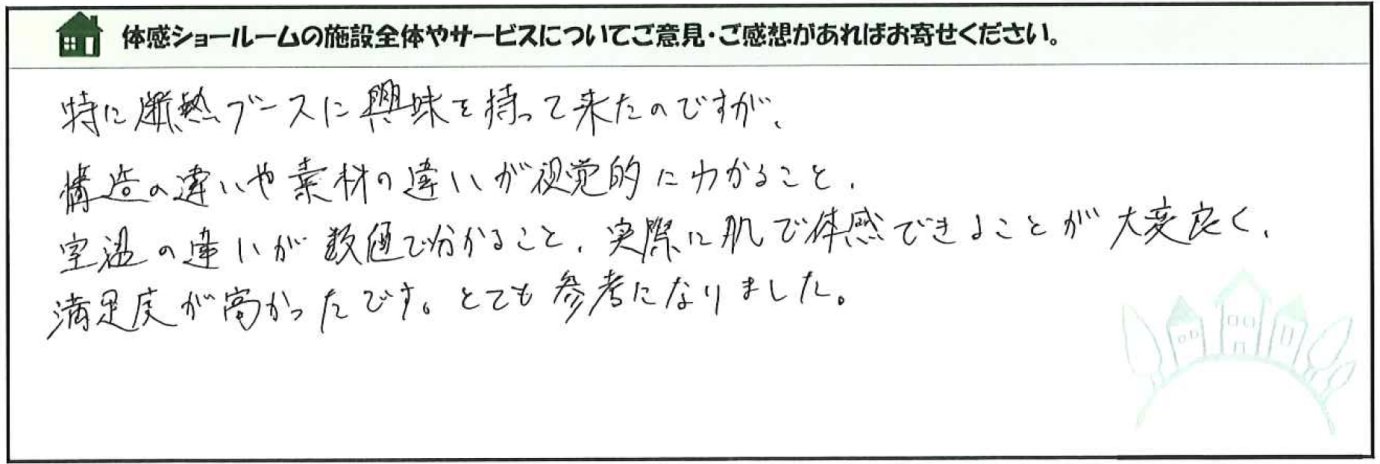 体感ショールームの施設全体やサービスについてご意見・ご感想があればお寄せください。
特に断熱ブースに興味を持って来たのですが、
構造の違いや素材の違いが視覚的にわかること、
室温の違いが数値で分かること、実際に肌で体感できることが大変良く、
満足度が高かったです。とても参考になりました。